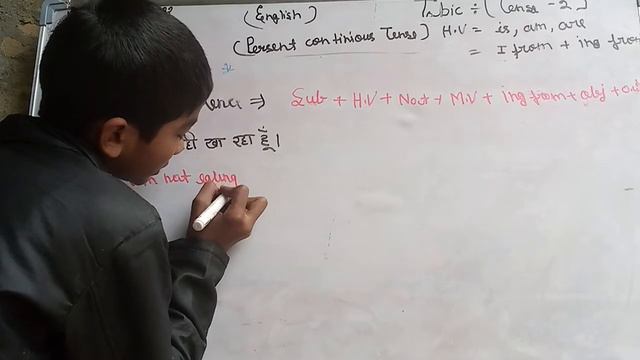 (English) Tubic ÷ (Tense - 2)
(Persent continious Tense) H.V = is, am, are
= I from + ing from
⇒ Sub + H.V + Not + M.V + ing from + obj + 
खा रहा हूँ।
not eating